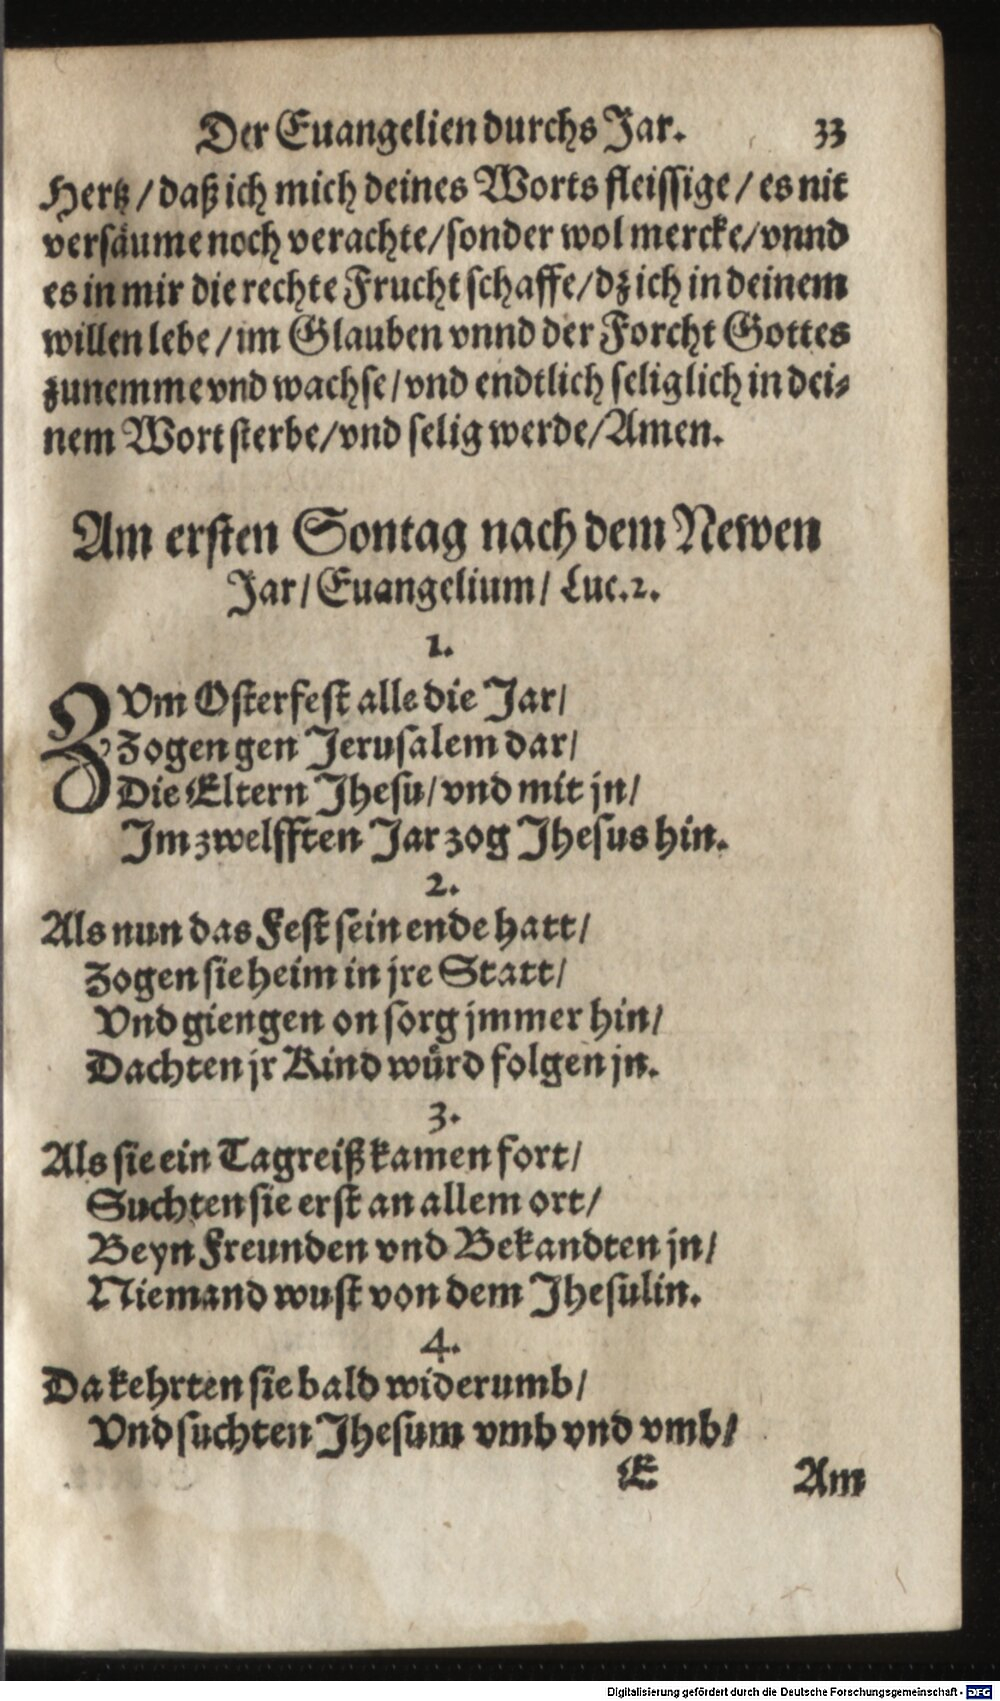 Der Euangelien durchs Jar. 33
Hertz / daß ich mich deines Worts fleissige / es nit
versäume noch verachte / sonder wol mercke / vnnd
es in mir die rechte Frucht schaffe / dz ich in deinem
willen lebe / im Glauben vnnd der Forcht Gottes
zunemme vnd wachse / vnd endtlich seliglich in dei⸗
nem Wort sterbe / vnd selig werde / Amen.
Am ersten Sontag nach dem Newen
Jar / Euangelium / Luc. 2.
1.
ZVm Osterfest alle die Jar /
Zogen gen Jerusalem dar /
Die Eltern Jhesu / vnd mit jn /
Im zwelfften Jar zog Jhesus hin.
2.
Als nun das Fest sein ende hatt /
Zogen sie heim in jre Statt /
Vnd giengen on sorg jmmer hin /
Dachten jr Kind wuͤrd folgen jn.
3.
Als sie ein Tagreiß kamen fort /
Suchten sie erst an allem ort /
Beyn Freunden vnd Bekandten jn /
Niemand wust von dem Jhesulin.
4.
Da kehrten sie bald widerumb /
Vnd suchten Jhesum vmb vnd vmb /
E Am
Digitalisierung gefördert durch die Deutsche Forschungsgemeinschaft - DFG